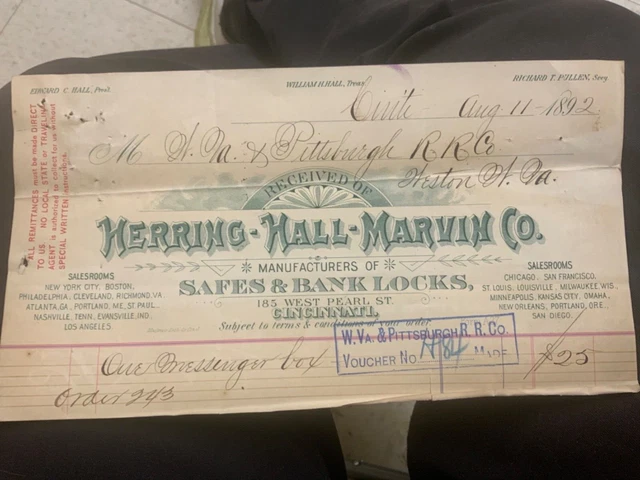 EDWARD C. HALL, Prest.
WILLIAM H. HALL, Treas.
RICHARD T. PULLEN, Secy.
Cin'ti Aug 11 - 1892
M W. Va. & Pittsburgh R R Co
Weston W. Va.
ALL REMITTANCES must be made DIRECT
TO US. NO LOCAL STATE or TRAVELING
AGENT is authorized to collect for us without
SPECIAL WRITTEN instructions.
RECEIVED OF
HERRING-HALL-MARVIN CO.
MANUFACTURERS OF
SAFES & BANK LOCKS,
185 WEST PEARL ST.
CINCINNATI,
Subject to terms & conditions of your order
SALESROOMS
NEW YORK CITY, BOSTON,
PHILADELPHIA, CLEVELAND, RICHMOND, VA
ATLANTA, GA., PORTLAND, ME. ST. PAUL,
NASHVILLE, TENN. EVANSVILLE, IND.,
LOS ANGELES.
SALESROOMS
CHICAGO, SAN FRANCISCO,
ST. LOUIS, LOUISVILLE, MILWAUKEE, WIS.,
MINNEAPOLIS, KANSAS CITY, OMAHA,
NEW ORLEANS, PORTLAND, ORE.,
SAN DIEGO.
W. VA. & PITTSBURGH R. R. Co.
VOUCHER No MADE
One Messenger box $25
Order 243